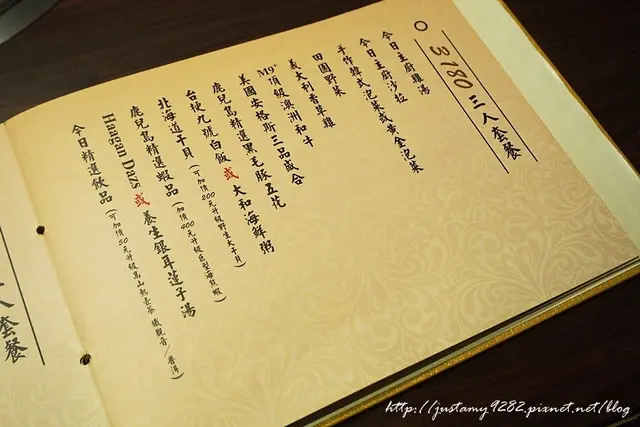 3780 三人套餐
今日主廚雞湯
今日主廚沙拉
手作韓式泡菜或黃金泡菜
田園野菜
義大利香草雞
M9+頂級澳洲和牛
美國安格斯三品或合
鹿兒島精選黑毛豚五花
台梗九號白飯 或 大和海鮮粥
北海道干貝(可加價200元升級野生大干貝)
鹿兒島精選蝦品(加價400元升級巨型海熊蝦)
Haagan Dazs 或 養生銀耳蓮子湯
今日精選飲品(可加價50元升級高山烏龍茶 鐵觀音/普洱)
人套餐
http://justamy9282.pixnet.net/blog